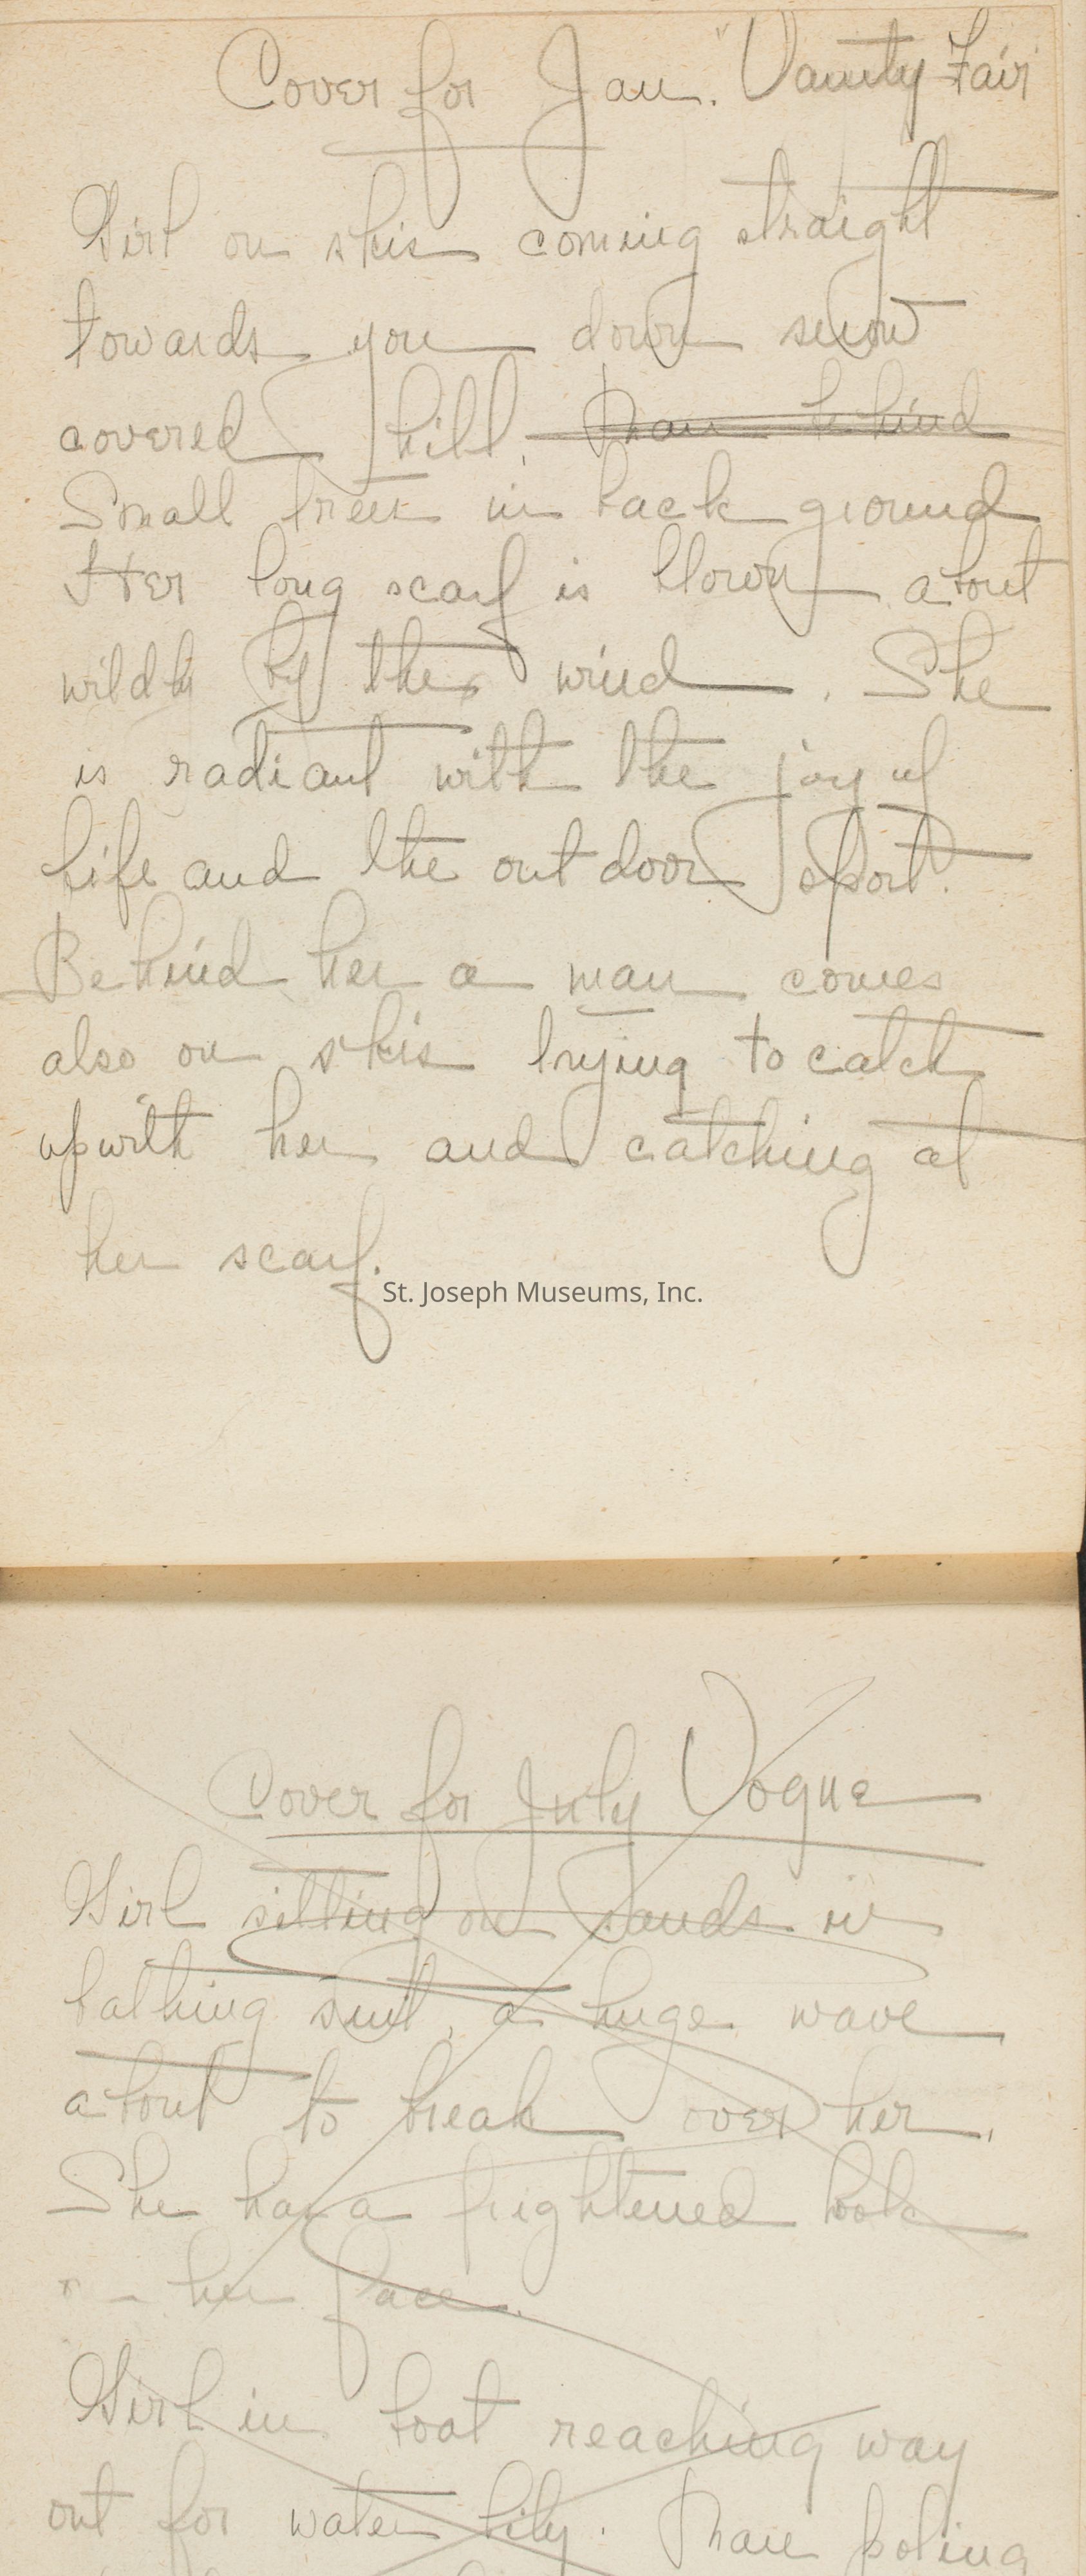 Cover for Jan. "Vanity Fair
Girl on skis coming straight
towards you down snow
covered hill. Man behind
Small trees in back ground
Her long scarf is blown about
wildly by the wind. She
is radiant with the joy of
life and the outdoor sport.
Behind her a man comes
also on skis trying to catch
up with her and catching at
her scarf.
St. Joseph Museums, Inc.
Cover for July Vogue
Girl sitting on sands in
bathing suit, a huge wave
about to break over her.
She has a frightened look
her face.
Girl in boat reaching way
out for water lily. Man poling